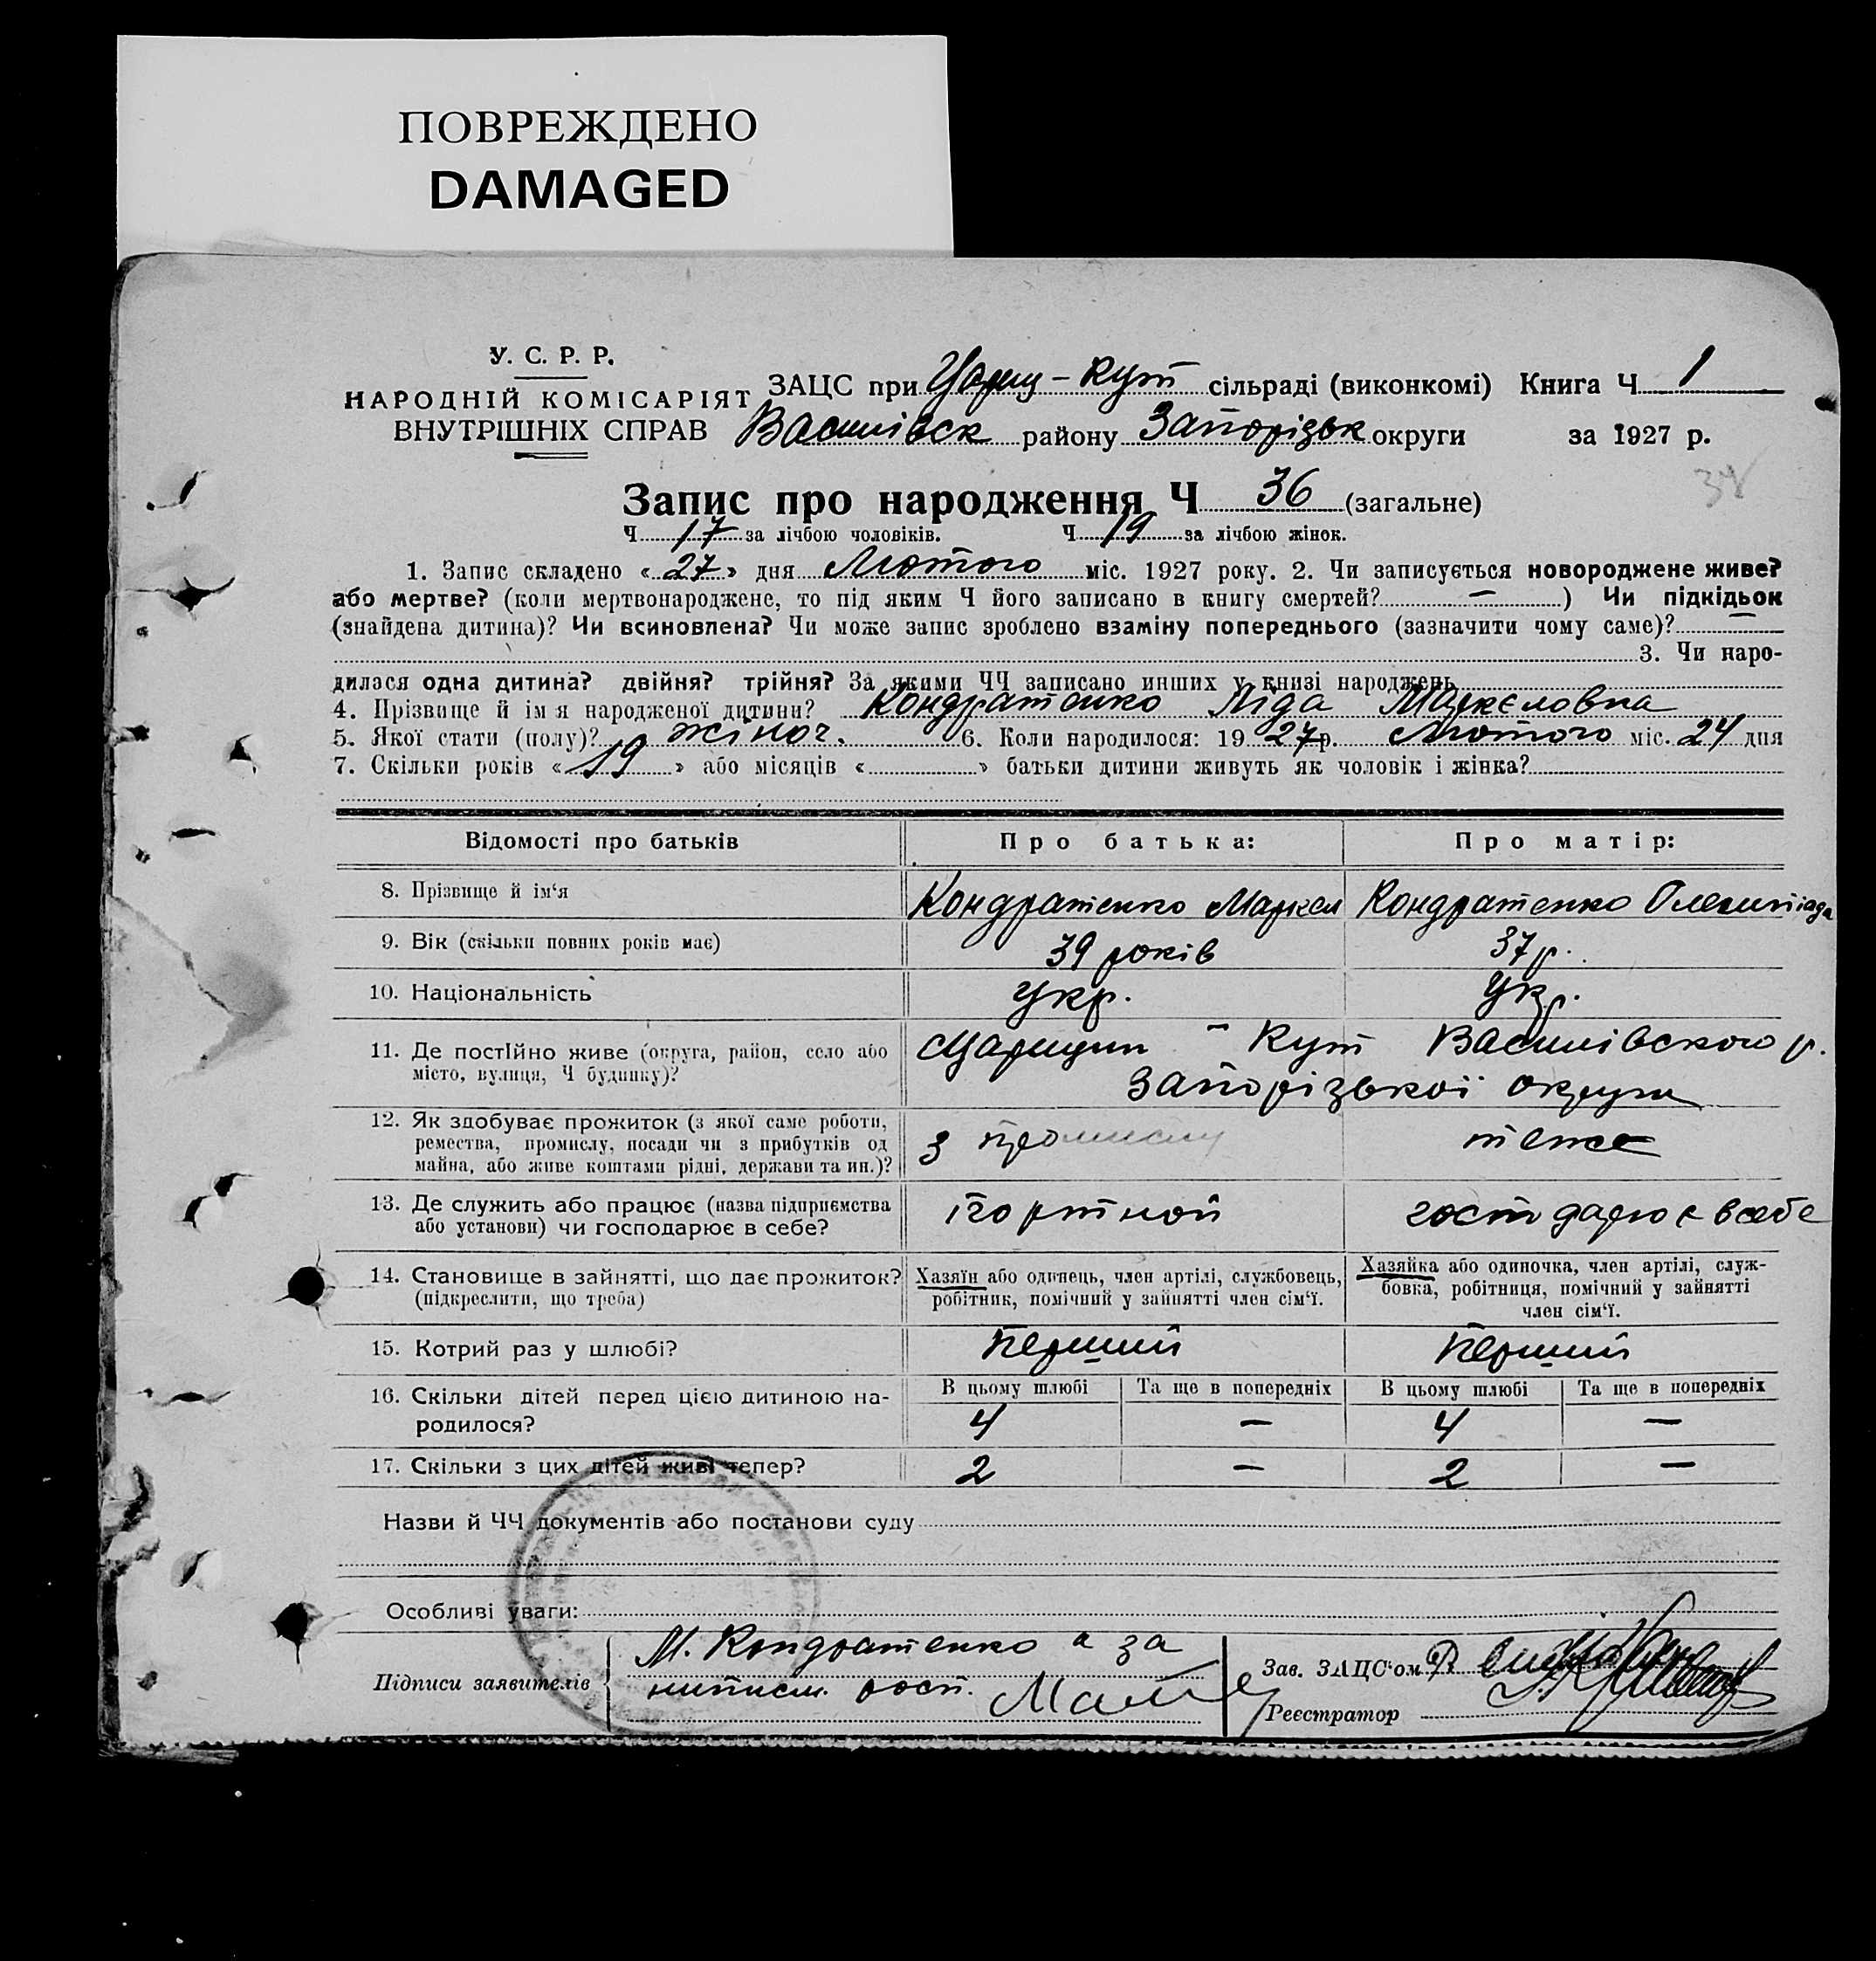 ПОВРЕЖДЕНО
DAMAGED
У. С. Р. Р.
НАРОДНІЙ КОМІСАРІЯТ
ВНУТРІШНІХ СПРАВ
ЗАЦС при Цариц-Кут сільраді (виконкомі) Книга Ч 1
Василівськ району Запорізьк округи за 1927 р.
Запис про народження Ч 36 (загальне)
Ч 17 за лічбою чоловіків. Ч 19 за лічбою жінок.
1. Запис складено «27» дня Лютого міс. 1927 року. 2. Чи записується новороджене живе?
або мертве? (коли мертвонароджене, то під яким Ч його записано в книгу смертей? —) Чи підкідьок
(знайдена дитина)? Чи всиновлена? Чи може запис зроблено взаміну попереднього (зазначити чому саме)? —
3. Чи наро-
дилася одна дитина? двійня? трійня? За якими ЧЧ записано инших у книзі народжень
4. Прізвище й імя народженої дитини? Кондратенко Ліда Маркєловна
5. Якої стати (полу)? жіноч. 6. Коли народилося: 1927р. Лютого міс. 24 дня
7. Скільки років «19» або місяців « » батьки дитини живуть як чоловік і жінка?
Відомості про батьків Про батька: Про матір:
8. Прізвище й ім'я Кондратенко Маркел Кондратенко Олемпіада
9. Вік (скільки повних років має) 39 років 37 р.
10. Національність Укр. Укр.
11. Де постІйно живе (округа, район, село або
місто, вулиця, Ч будинку)?
Царицин - Кут Василівского р.
Запорізької округи
12. Як здобуває прожиток (з якої саме роботи,
ремества, промислу, посади чи з прибутків од
майна, або живе коштами рідні, держави та ин.)?
з промислу теже
13. Де служить або працює (назва підприємства
або установи) чи господарює в себе?
портной господарює в себе
14. Становище в зайнятті, що дає прожиток?
(підкреслити, що треба)
Хазяїн або одинець, член артілі, службовець,
робітник, помічний у зайнятті член сім'ї.
Хазяйка або одиночка, член артілі, служ-
бовка, робітниця, помічний у зайнятті
член сім'ї.
15. Котрий раз у шлюбі? Перший Перший
16. Скільки дітей перед цією дитиною на-
родилося?
В цьому шлюбі Та ще в попередніх В цьому шлюбі Та ще в попередніх
4 — 4 —
17. Скільки з цих дітей живі тепер? 2 — 2 —
Назви й ЧЧ документів або постанови суду
Особливі уваги:
Підписи заявителів
М. Кондратенко а за
Зав. ЗАЦС'ом
Реєстратор